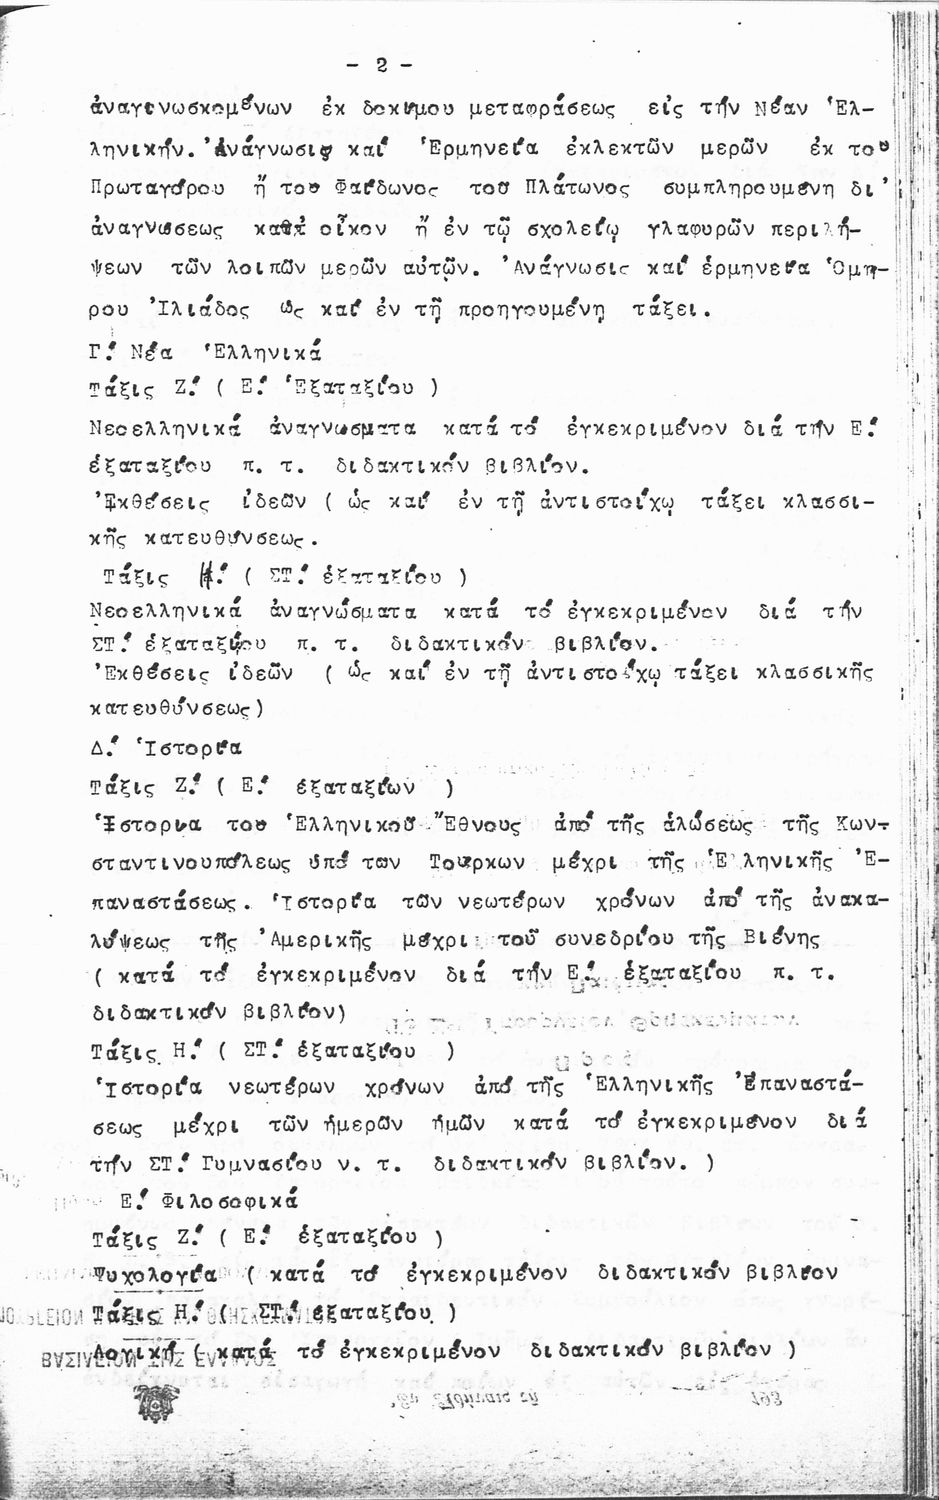 - 2 -
ἀναγινωσκομένων ἐκ δοκίμου μεταφράσεως εἰς τήν Νέαν Ἑλ-
ληνικήν. Ἀνάγνωσις καί Ἑρμηνεία ἐκλεκτῶν μερῶν ἐκ τοῦ
Πρωταγόρου ἤ τοῦ Φαίδωνος τοῦ Πλάτωνος συμπληρουμένη δι'
ἀναγνώσεως κατά οἶκον ἤ ἐν τῷ σχολείῳ γλαφυρῶν περιλή-
ψεων τῶν λοιπῶν μερῶν αὐτῶν. Ἀνάγνωσις καί ἑρμηνεία Ὁμή-
ρου Ἰλιάδος ὡς καί ἐν τῇ προηγουμένῃ τάξει.
Γ.' Νέα Ἑλληνικά
Τάξις Ζ.' ( Ε.' Ἑξαταξίου )
Νεοελληνικά ἀναγνώσματα κατά τό ἐγκεκριμένον διά τήν Ε.'
ἑξαταξίου π. τ. διδακτικόν βιβλίον.
Ἐκθέσεις ἰδεῶν ( ὡς καί ἐν τῇ ἀντιστοίχῳ τάξει κλασσι-
κῆς κατευθύνσεως.
Τάξις Η.' ( ΣΤ.' ἑξαταξίου )
Νεοελληνικά ἀναγνώσματα κατά τό ἐγκεκριμένον διά τήν
ΣΤ.' ἑξαταξίου π. τ. διδακτικόν βιβλίον.
Ἐκθέσεις ἰδεῶν ( ὡς καί ἐν τῇ ἀντιστοίχῳ τάξει κλασσικῆς
κατευθύνσεως)
Δ.' Ἱστορία
Τάξις Ζ.' ( Ε.' ἑξαταξίων )
Ἱστορία τοῦ Ἑλληνικοῦ Ἔθνους ἀπό τῆς ἁλώσεως τῆς Κων-
σταντινουπόλεως ὑπό των Τούρκων μέχρι τῆς Ἑλληνικῆς Ἐ-
παναστάσεως. Ἱστορία τῶν νεωτέρων χρόνων ἀπό τῆς ἀνακα-
λύψεως τῆς Ἀμερικῆς μέχρι τοῦ συνεδρίου τῆς Βιένης
( κατά τό ἐγκεκριμένον διά τήν Ε.' ἑξαταξίου π. τ.
διδακτικόν βιβλίον)
Τάξις Η.' ( ΣΤ.' ἑξαταξίου )
Ἱστορία νεωτέρων χρόνων ἀπό τῆς Ἑλληνικῆς Ἐπαναστά-
σεως μέχρι τῶν ἡμερῶν ἡμῶν κατά τό ἐγκεκριμένον διά
τήν ΣΤ.' Γυμνασίου ν. τ. διδακτικόν βιβλίον. )
Ε.' Φιλοσοφικά
Τάξις Ζ.' ( Ε.' ἑξαταξίου )
Ψυχολογία ( κατά τό ἐγκεκριμένον διδακτικόν βιβλίον
Τάξις Η.' ( ΣΤ.' ἑξαταξίου )
Λογική ( κατά τό ἐγκεκριμένον διδακτικόν βιβλίον )